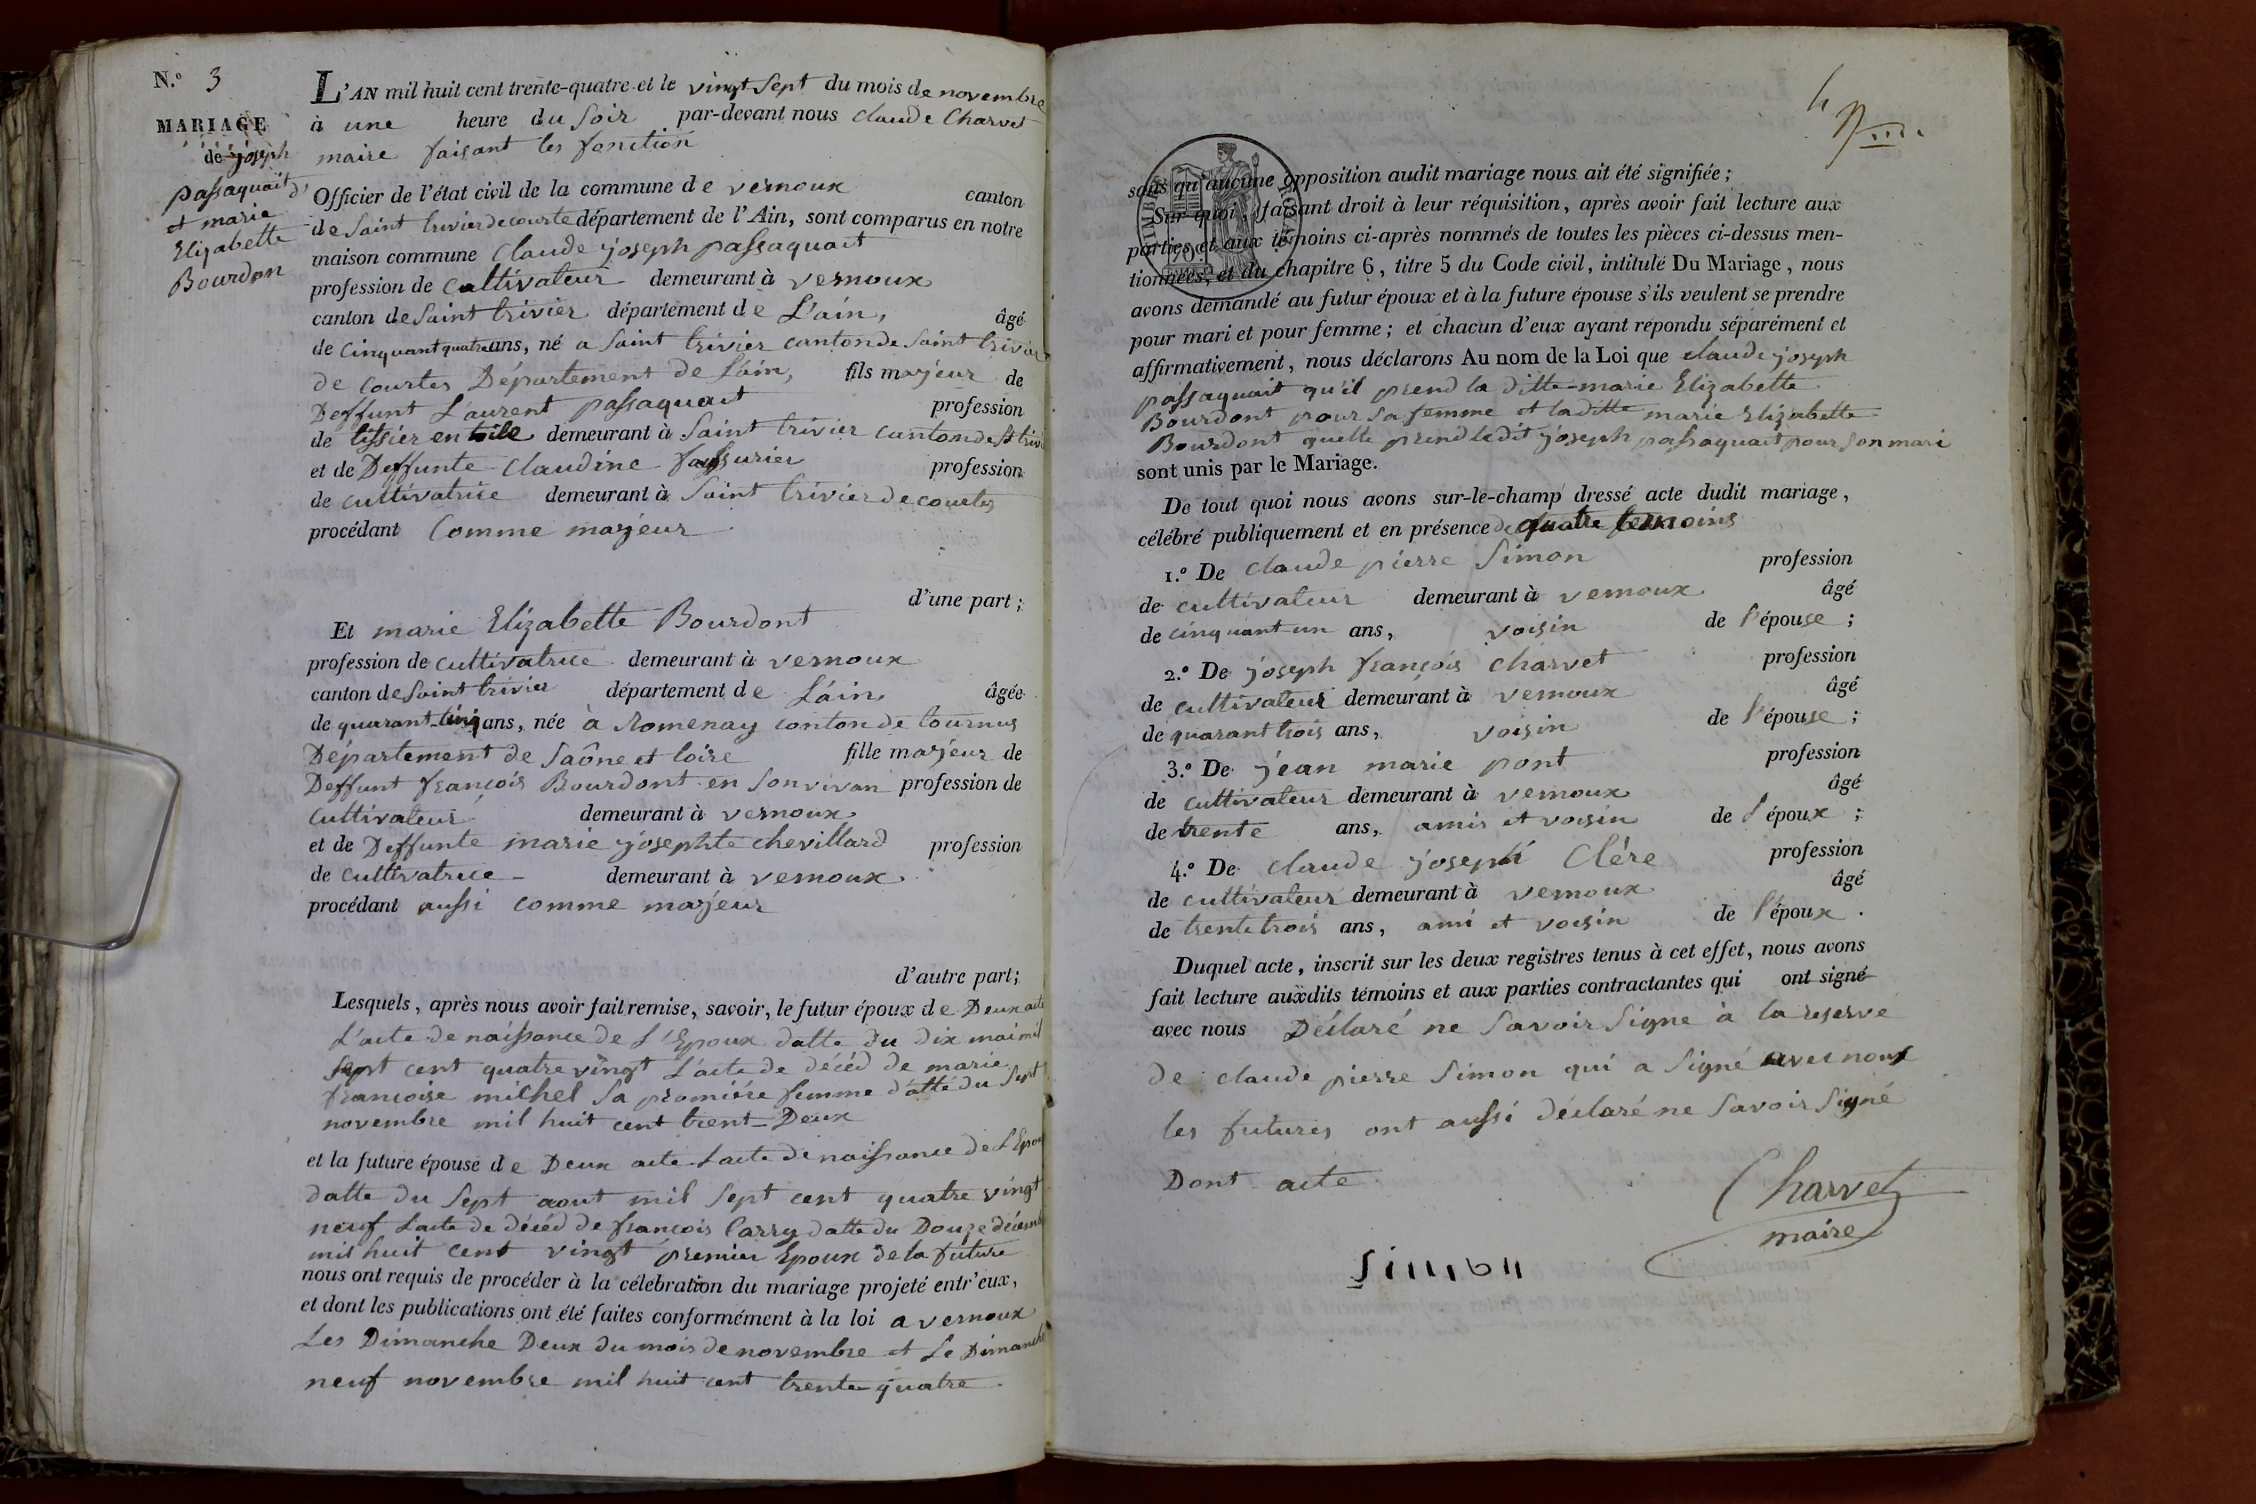 N.o 3
MARIAGE
de joseph
passaquait
et marie
Elizabette
Bourdon
L'AN mil huit cent trente-quatre et le vingt sept du mois de novembre
à une heure du soir par-devant nous claude Charvet
maire faisant les fonction
Officier de l'état civil de la commune de vernoux canton
de Saint trivier de courte département de l'Ain, sont comparus en notre
maison commune Claude joseph passaquait
profession de Cultivateur demeurant à vernoux
canton de Saint trivier département de L'ain, âgé
de Cinquant quatre ans, né a Saint trivier canton de Saint trivier
de courtes Département de L'ain, fils majeur de
Deffunt Laurent passaquait profession
de tissier en toile demeurant à Saint trivier canton de St trivi
et de Deffunte Claudine profession
de cultivatrice demeurant à Saint trivier de courtes
procédant Comme majeur
d'une part;
Et marie Elizabette Bourdont
profession de cultivatrice demeurant à vernoux
canton de Saint trivier département de L'ain âgée
de quarant cinq ans, née à Romenay conton de tournus
Département de Saône et loire fille majeur de
Deffunt françois Bourdont en son vivan profession de
Cultivateur demeurant à vernoux
et de Deffunte marie josephte chevillard profession
de cultivatrice demeurant à vernoux
procédant aussi comme majeur
d'autre part;
Lesquels, après nous avoir fait remise, savoir, le futur époux de Deux acte
L'acte de naissance de L'Epoux datte du dix mai mil
sept cent quatre vingt L'acte de décéd de marie
francoise milhel Sa promiére femme datté du Sept
novembre mil huit cent trent-Deux
et la future épouse de Deux acte Lacte de naissance de L'Epou
datte du Sept aout mil Sept cent quatre vingt
neuf Lacte de décéd de françois Carry datte du Douze décemb
mil huit cent vingt premier Epoux de la future
nous ont requis de procéder à la célébration du mariage projeté entr'eux,
et dont les publications ont été faites conformément à la loi a vernoux
Les Dimanche Deux du mois de novembre et Le Dimanche
neuf novembre mil huit cent trente quatre
4
TIMBRE ROYAL
70
sans qu'aucune opposition audit mariage nous ait été signifiée;
Sur quoi, faisant droit à leur réquisition, après avoir fait lecture aux
parties et aux témoins ci-après nommés de toutes les pièces ci-dessus men-
tionnées, et du chapitre 6, titre 5 du Code civil, intitulé Du Mariage, nous
avons demandé au futur époux et à la future épouse s'ils veulent se prendre
pour mari et pour femme; et chacun d'eux ayant répondu séparément et
affirmativement, nous déclarons Au nom de la Loi que claude joseph
passaquait qu'il prend la ditte marie Elizabette
Bourdont pour sa femme et la ditte marie Elizabette
Bourdont quelle prend le dit joseph passaquait pour son mari
sont unis par le Mariage.
De tout quoi nous avons sur-le-champ dressé acte dudit mariage,
célébré publiquement et en présence de quatre temoins
1.o De claude pierre Simon profession
de cultivateur demeurant à vernoux âgé
de cinquant un ans, voisin de l'épouse;
2.o De joseph françois charvet profession
de cultivateur demeurant à vernoux âgé
de quarant trois ans, voisin de l'épouse;
3.o De jean marie pont profession
de cultivateur demeurant à vernoux âgé
de trente ans, amis et voisin de l'époux;
4.o De claude joseph Clére profession
de cultivateur demeurant à vernoux âgé
de trente trois ans, ami et voisin de l'époux.
Duquel acte, inscrit sur les deux registres tenus à cet effet, nous avons
fait lecture auxdits témoins et aux parties contractantes qui ont signé
avec nous Déclaré ne Savoir Signe à la reserve
de claude pierre Simon qui a Signé avec nous
les futures ont aussi déclaré ne Savoir Signé
Dont acte
Charvet
maire
Simon